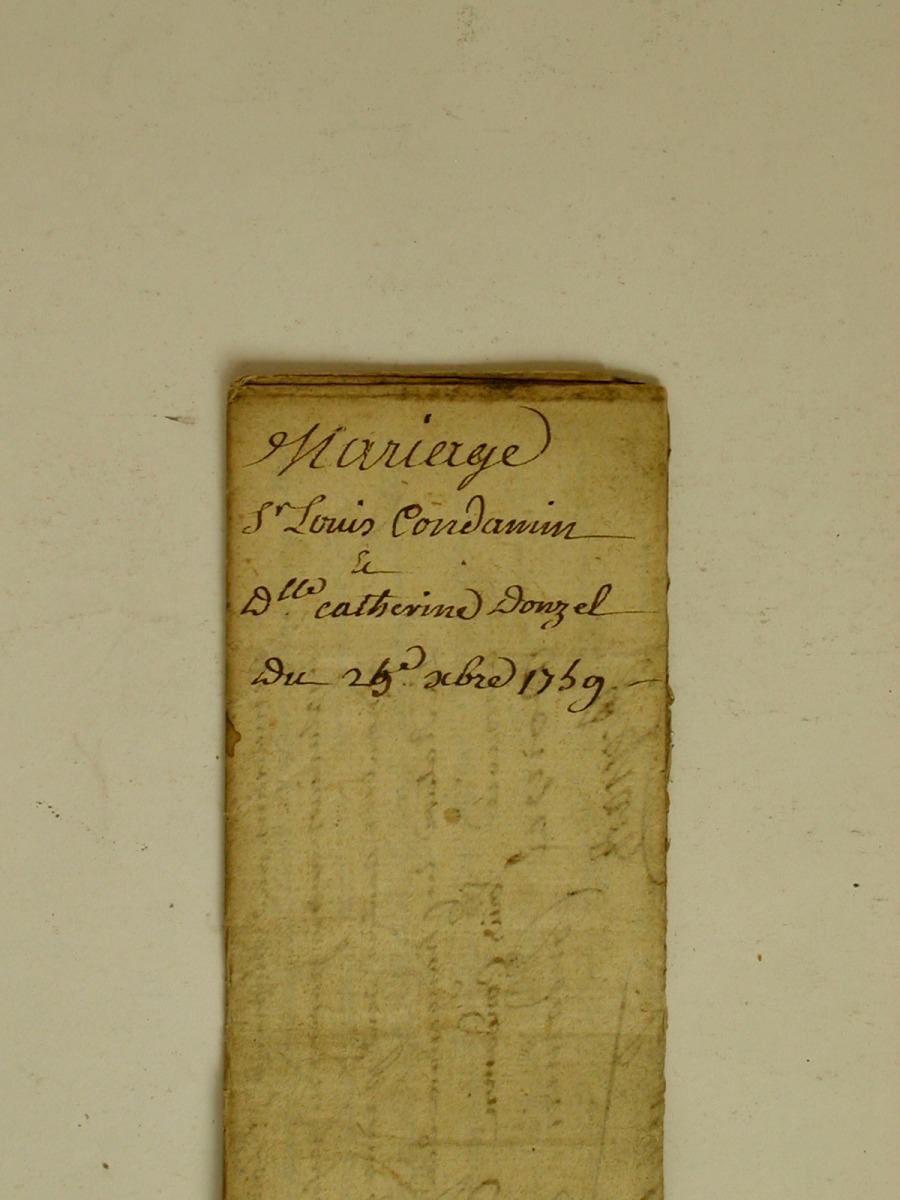 Mariage
Sr Louis Condamin
&
Dlle catherine Donzel
Du 25e xbre 1759